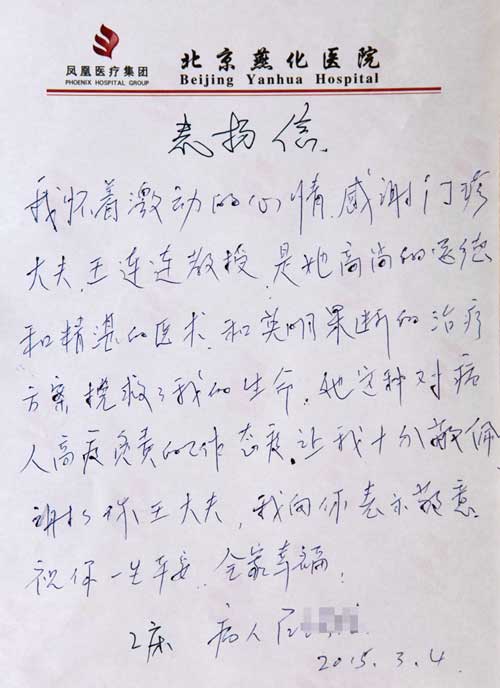 凤凰医疗集团
PHOENIX HOSPITAL GROUP
北京燕化医院
Beijing Yanhua Hospital
表扬信
我怀着激动的心情,感谢门诊
大夫,王连连教授,是她高尚的医德
和精湛的医术,和英明果断的治疗
方案挽救了我的生命,她这种对病
人高度负责的工作态度,让我十分敬佩
谢谢你王大夫,我向你表示敬意
祝你一生平安,全家幸福!
2床 病人
2015.3.4